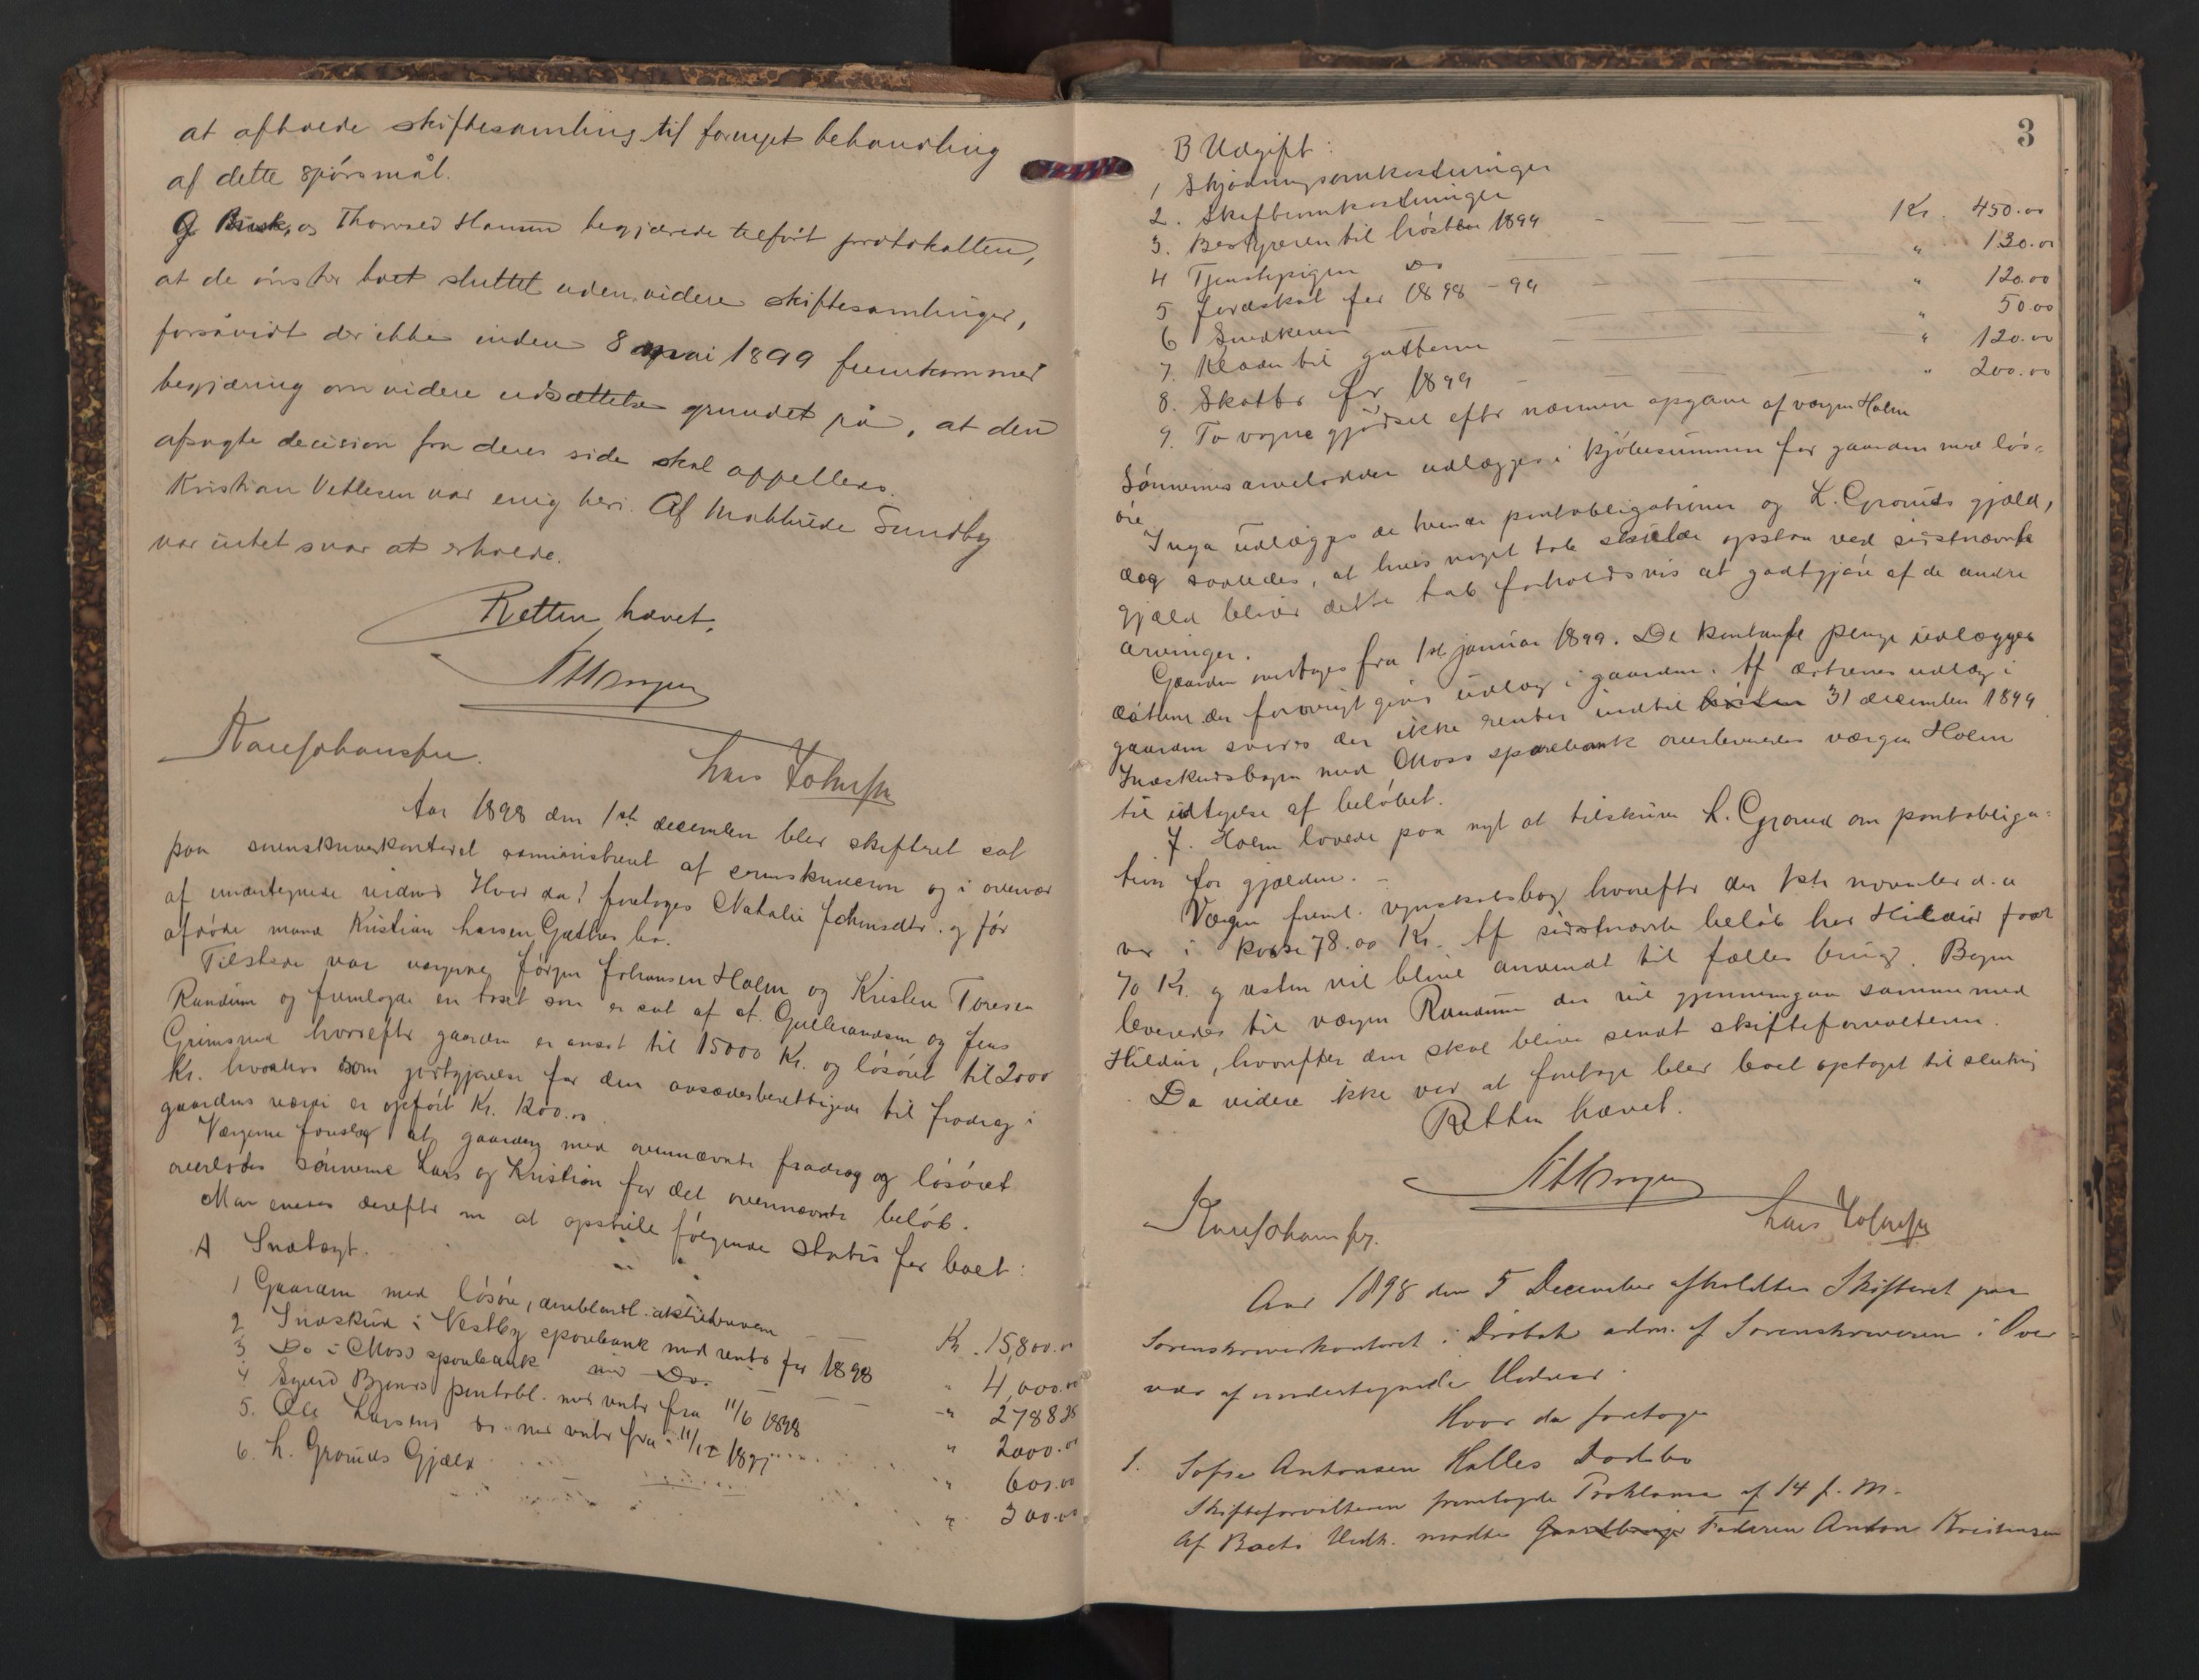 at afholde skiftesamling til fornyet behandling
af dette spörsmål.
G. Busk, og Thorvald Hansen begjærede tilfört protokollen,
at de önsker boet sluttet uden videre skiftesamlinger,
forsåvidt der ikke inden 8 mai 1899 fremkommer
begjæring om videre udsættelse grundet på, at den
afsagte decision fra deres side skal appelleres.
Kristian Vetlesen var enig heri. Af Mathilde Sundby
var intet svar at erholde.
Retten hævet.
Lars Johnsen
Aar 1898 den 1ste december blev skifteret sat
paa sorenskriverkontoret administreret af sorenskriveren og i overvær
af undertegnede vidner Hvor da! foretoges Natalie Johnsdtr. og för
afdöde mand Kristian Larsen Gjethus bo.
Tilstede var værgerne Jörgen Johansen Holm og Kristen Toresen
Randum og fremlagde en taxt som er sat af A. Gulbrandsen og Jens
Grimsrud hvorefter gaarden er ansat til 15000 Kr. og lösöret til 2000
Kr. hvorhos som godtgjørelse for den aasædesberettigede til fradrag i
gaardens værdi er opfört Kr. 1200.00
Værgerne foreslog at gaarden med ovennævnte fradrag og lösöret
overlodes sönnerne Lars og Kristian for det ovennævnte beløb.
Man enedes derefter om at opstille følgende status for boet:
A Indtægt.
1 Gaarden med lösöre, deriblandt Kr. 15,800.00
2 Indskud i Vestby sparebank med renter for 1898 " 4,000.00
3 Do i Moss sparebank med Do. " 2788 38
4 Sigurd Bjerkes pantobl. med renter fra 11/6 1898 " 2000.00
5. Ole Larsens do. med renter fra 11/12 1897 " 600.00
6. L. Gronds Gjæld " 300.00
3
B Udgift:
1 Skjödningsomkostninger
2. Skifteomkostninger Kr. 450.00
3. Bestyreren til hösten 1899 " 130.00
4 Tjenstepigen Do " 120.00
5 Jordskat for 1898 - 99 " 50.00
6 Snedkeren " 120.00
7. Klæder til gutterne " 200.00
8. Skatter for 1899
9. To vogne gjödsel efter nærmere opgave af værgen Holm
Sönnernes arvelodder udlægges i kjöbesummen for gaarden med lös-
öre
Inga udlægges de tvende pantobligationer og L. Gronds gjæld,
dog saaledes, at hvis noget tab skulde opstaa ved sidstnævnte
gjæld bliver dette tab forholdsvis at godtgjöre af de andre
arvinger.
Gaarden overtages fra 1ste januar 1899. De kontante penge udlægges
döttrene der forövrigt gives udlæg i gaarden. Af döttrenes udlæg i
gaarden svares der ikke renter indtil hösten 31 december 1899
Indskudsbogen med Moss sparebank overleveredes værgen Holm
til udtagelse af belöbet.
J. Holm lovede paa nyt at tilskrive L. Grond om pantobliga-
tion for gjælden. -
Værgen freml. regnskabsbog hvorefter der 1ste november d. a
var i kasse 78.00 Kr. Af sidstnævnte belöb har Hildur faat
70 Kr. og resten vil blive anvendt til fælles brug. Bogen
leveredes til værgen Randum der vil gjennemgaa samme med
Hildur, hvorefter den skal blive sendt skifteforvalteren.
Da videre ikke var at foretage blev boet optaget til slutning
Retten hævet.
Lars Johnsen
Aar 1898 den 5 December afholdtes Skifteret paa
Sorenskriverkontoret i Dröbak adm. af Sorenskriveren i Over-
vær af undertegnede Vidner.
Hvor da foretoges
1. Sofie Antonsen Halles Dödsbo
Skifteforvalteren fremlagde Proklama af 14 f. M.
Af Boets Vedk. mødte Gaardbruger Faderen Anton Kristensen